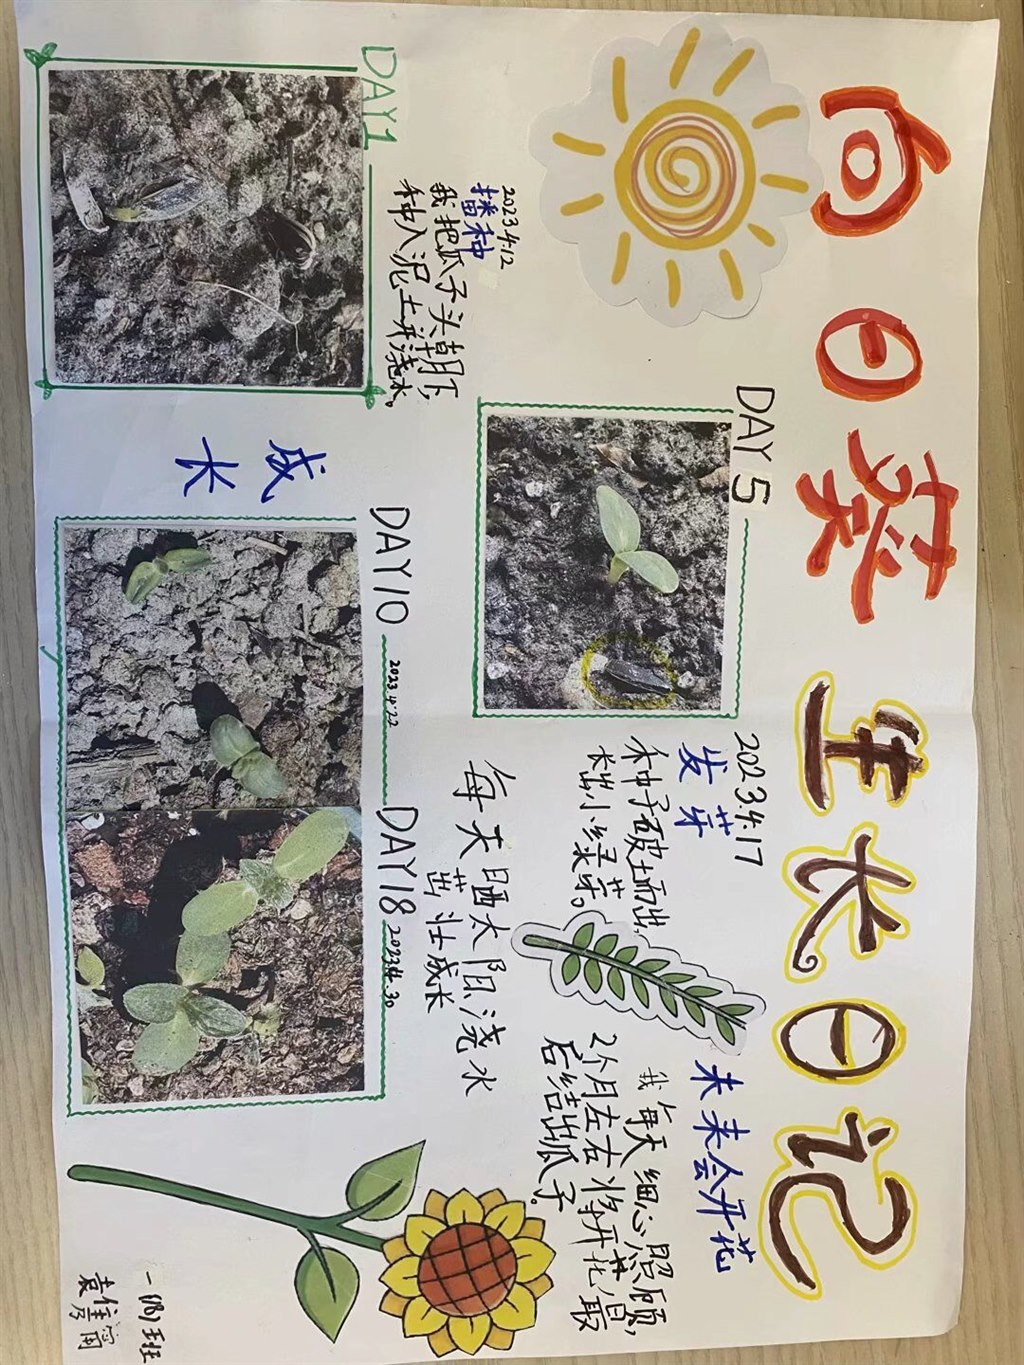 向日葵生长日记
DAY1
2023.4.12
播种
我把瓜子头朝下,
种入泥土并浇水。
DAY 5
2023.4.17
发芽
种子破土而出,
长出小绿芽。
成长
DAY10
2023.4.22
DAY18
2023.4.30
每天晒太阳浇水
茁壮成长
未来会开花
我每天细心照顾,
2个月左右将开花,最
后结出瓜子。
一(8)班